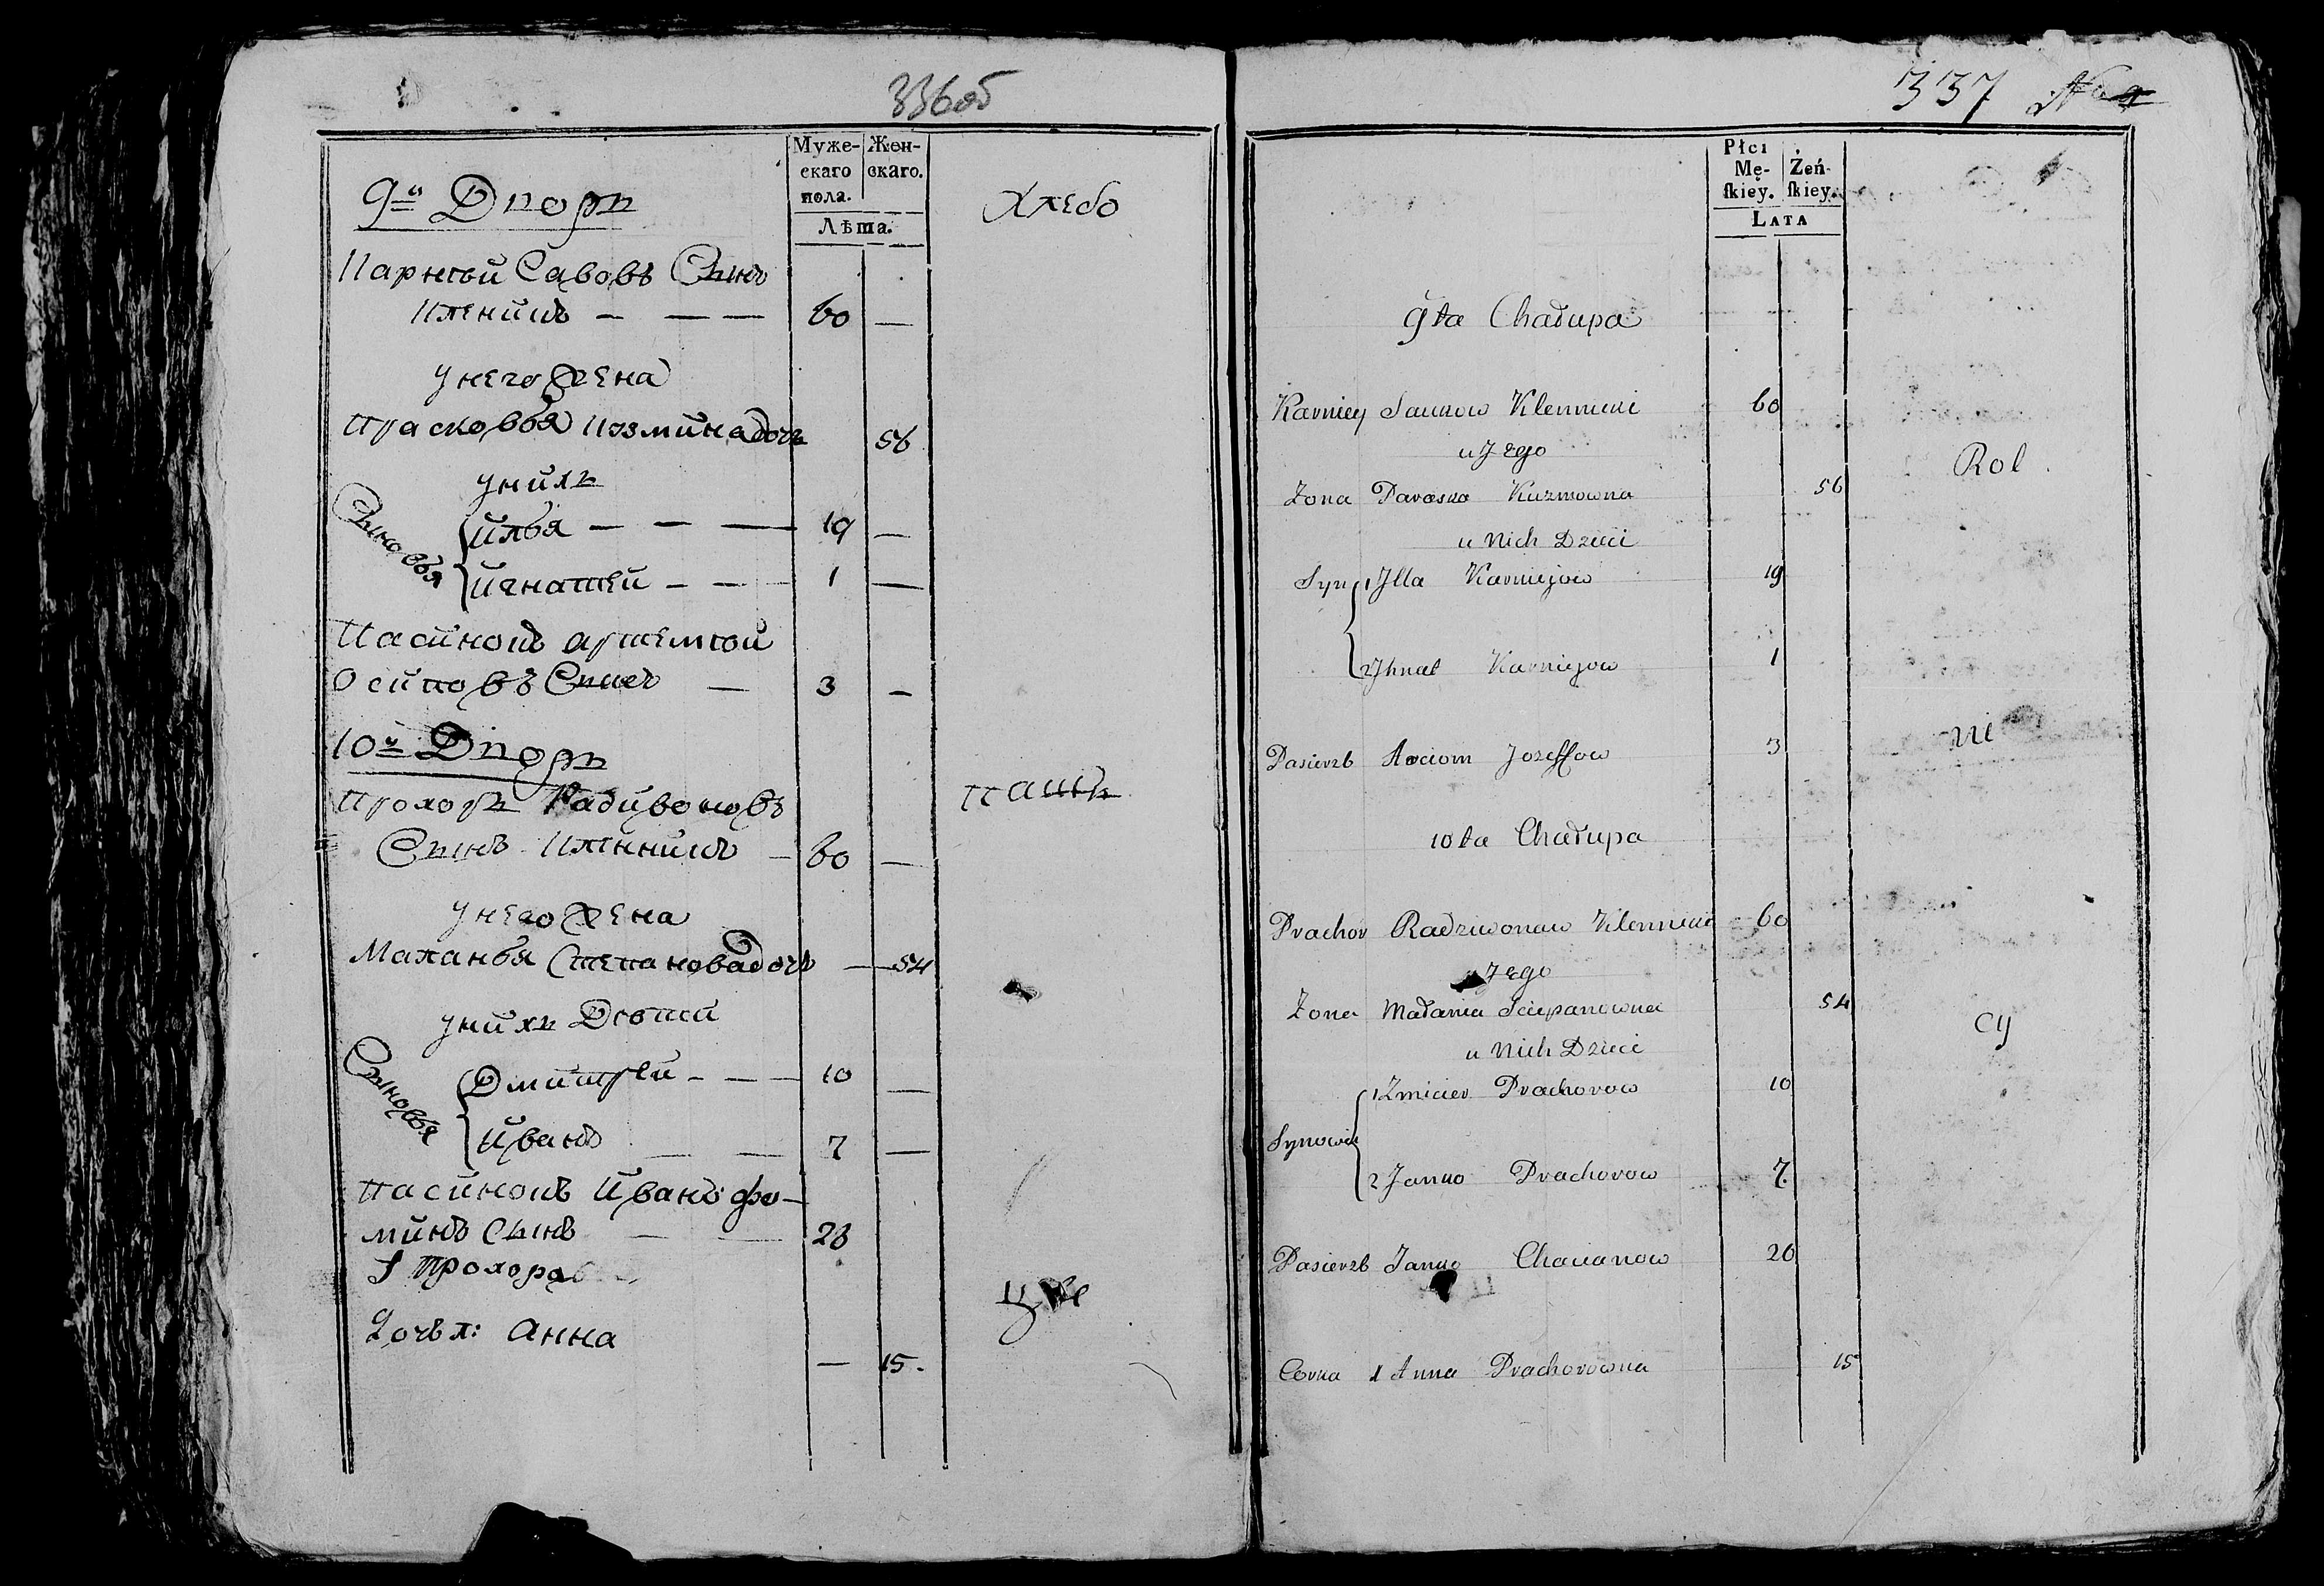 336об
Муже-
скаго
пола.
Жен-
скаго.
Лѣта.
9й Дворъ
Хлебо
Карней Савовъ Сынъ
Клѣникъ — — — 60 —
У него Жена
Прасковья Козмина дочь 56
У нихъ
Сыновья
Илья — — — 19 —
Игнатей — — — 1 —
Пасинокъ Артемей
Осиповъ Сынъ — 3 —
10й Дворъ
Прохоръ Радивоновъ
паш
Сынъ Клѣнникъ — 60 —
У него Жена
Маланья Степанова дочь — 54
У нихъ Дѣти
Сыновья
Дмитрей — — — 10 —
Иванъ — — 7 —
Пасинокъ Иванъ Фо-
минъ Сынъ — — 26
У Прохора
цые
Дочь 1: Анна
— 15.
337
Płci
Mę-
skiey.
Żeń-
skiey.
Lata
9ta Chałupa
Karniey Saukow Klennicki 60
u Jego
Rol
Zona Paraska Kuzmowna 56
u Nich Dzieci
Syn 1 Jlla Karniejow 19
2 Jhnat Karniejow 1
ni
Pasierzb Arciom Jozeffow 3
10ta Chałupa
Prachor Radziwonaw Klennicki 60
u Jego
Zona Małania Sciepanowna 54
cy
u Nich Dzieci
Synowie
1 Zmicier Prachorow 10
2 Janko Prachorow 7.
Pasierzb Janko Chacianow 26
Corka 1 Anna Prachorowna 15